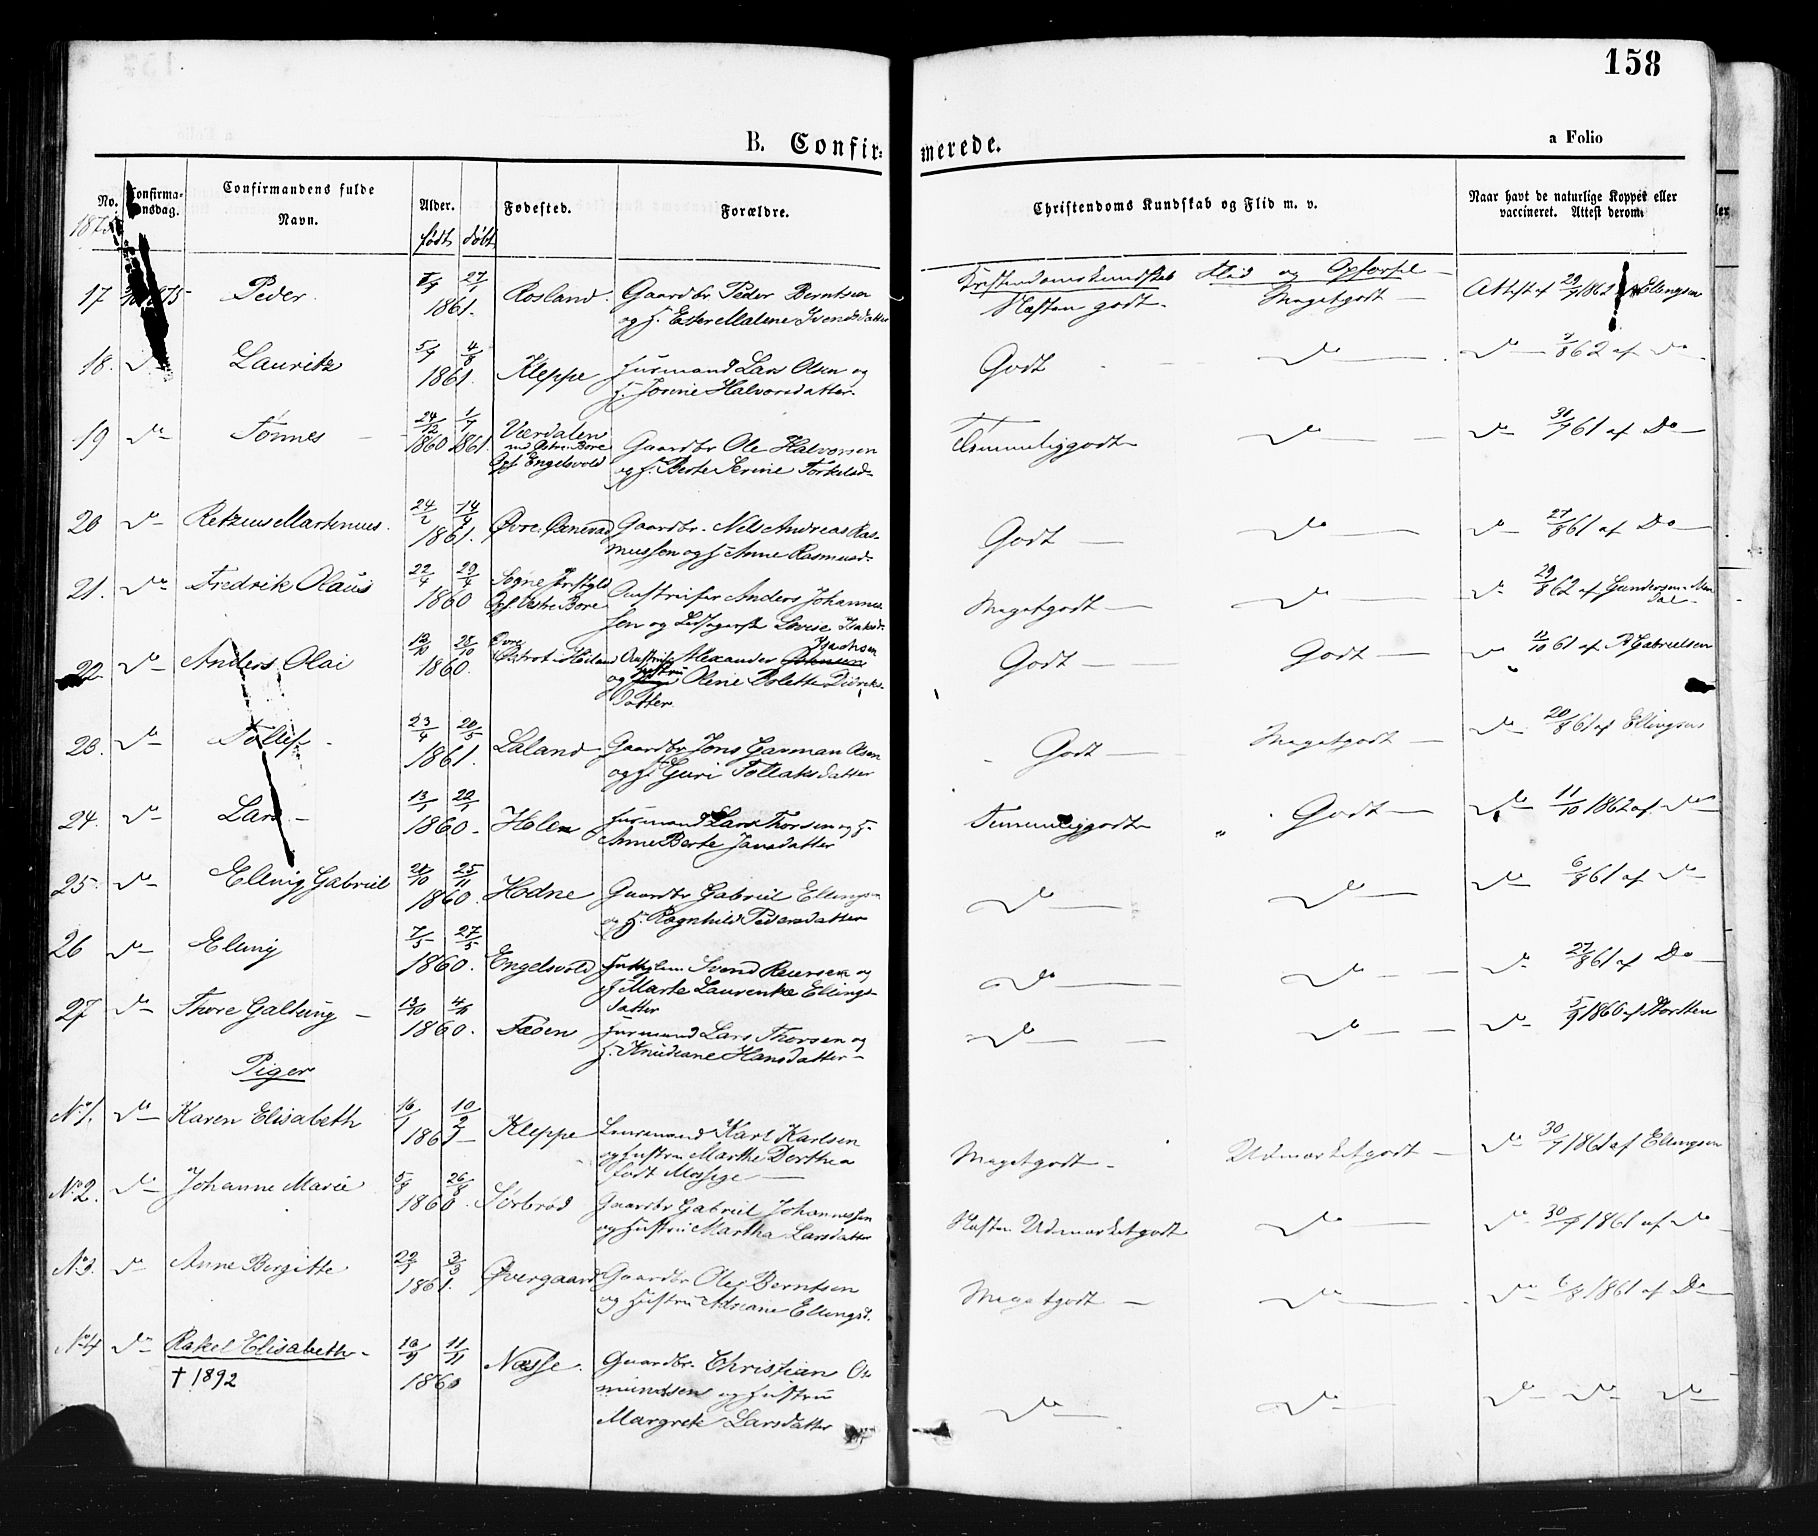 158
B. Confirmerede.
a Folio
No.
Confirmationsdag.
Confirmandens fulde Navn.
Alder.
født døbt
Fødested.
Forældre.
Christendoms Kundskab og Flid m. v.
Naar havt de naturlige Kopper eller vaccineret. Attest derom.
1875
Kristendomskundskab Flid og Opførsel
17 1875 Peder 27/ 1861. Rosland. Gaardbr. Peder Berntsen Næsten godt. Megetgodt Attest af 29/7 1862 Ellingsen
og h. Ester Malene Svendsdatter
18. do Lauritz 5/7 4/8 1861. Kleppe Huusmand Lars Olsen og Godt do do 62 af do
h. Jonine Halvorsdatter.
19 do Tønnes 24/12 1860 1/4 1861. Værdalen Gaardbr Ole Halvorsen Temmeliggodt do do 30/7 61 af Do
Opf Engelsvold og h. Berte Serine Torkelsd
20 do Retzius Martinius. 24/2 14/4 1861. Øvre Øxnevad Gaardbr. Nils Andreas Ras- Godt do do 27/8 61 af Do
mussen og h Anne Rasmusd
21. do Fredrik Olaus 22/4 29/4 1860 Sogne Opf. Vestre Bore Anders Johannes- Megetgodt do do 29/8 62 af Gundersen
sen og Lovise Isaksd
22 do Anders Olai 12/10 28/10 1860. Øvre Alexander Isachsen Godt Godt do 12/10 61 af R Gabrielsen
og Hustru Olene Bolette Didriks-
datter
23. do Tollef 23/4 20/5 1861. Laland Gaardbr Jons Garman Olsen Godt Megetgodt do 20/8 61 af Ellingsen
og h. Guri Tollaksdatter
24. do Lars 13/1 22/1 1860 Holen Huusmand Lars Thorsen og h. Temmeliggodt Godt do 11/10 1862 af do
Anne Berte Jansdatter
25 do Elling Gabriel 28/10 25/11 1860. Hodne Gaardbr Gabriel Ellingsen do do do 6/8 61 af do
og h. Ragnhild Pedersdatter
26 do Elling 7/5 27/5 1860. Engelsvold Svend Reiersen og do do do 27/8 61 af Do
h Marte Laurentze Ellings-
datter
27 do Thore Galtung 13/10 4/11 1860. Tæøen Huusmand Lars Thorsen og do do do 5/9 1860 af Northen
h. Knudiane Hansdatter
Piger
No 1. do Karen Elisabeth 16/1 10/2 1861 Kleppe Karl Karlsen Megetgodt Udmærketgodt do 30/7 1861 af Ellingsen
og hustru Marthe Dorthea
født Mossige
No 2. do Johanne Marie 5/8 26/8 1860. Sørbrød Gaardbr Gabriel Johannessen Næsten Udmærketgodt do do 30/7 1861 af do
og hustru Martha Larsdatter
No 3. do Anne Bergitte 22/1 3/3 1861. Øvergaard Gaardbr Ole Berntsen Megetgodt do do 6/8 1861 af Do
og hustru Adriane Ellingsd.
No 4 do Rakel Elisabeth 10/9 11/11 1860 Næsse. Gaardbr. Christian Os- do do do do do
† 1892 mundsen og hustru
Margrete Larsdatter